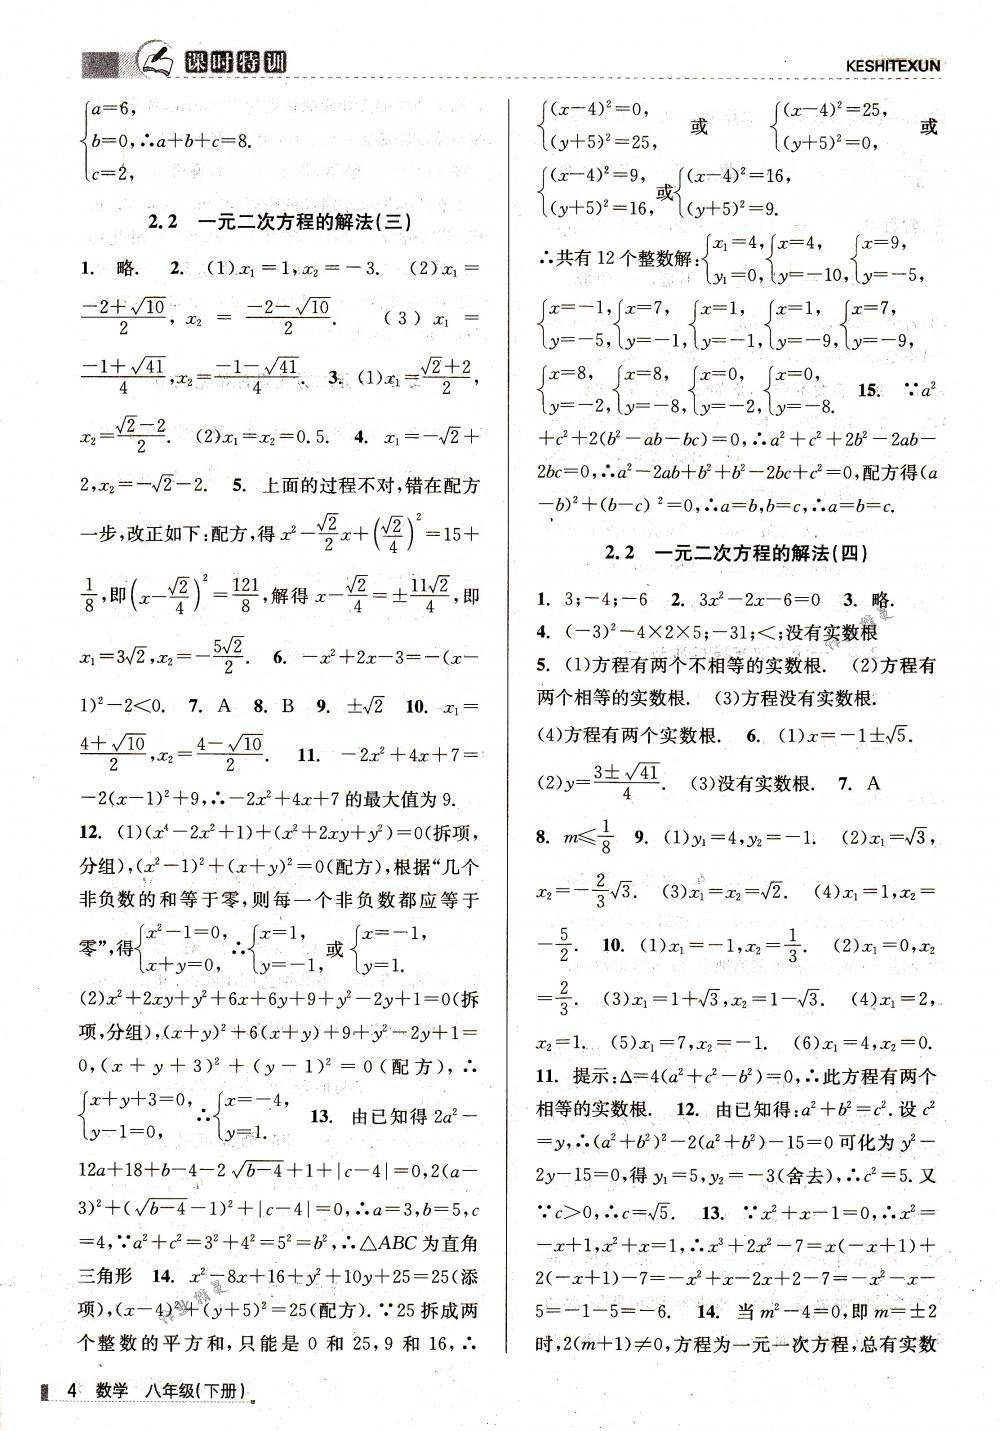 课时特训
KESHITEXUN
{a=6,
b=0,∴a+b+c=8.
c=2,
2.2 一元二次方程的解法(三)
1. 略. 2. (1)x₁=1,x₂=-3. (2)x₁=
(-2+√10)/2, x₂ = (-2-√10)/2. (3) x₁ =
(-1+√41)/4,x₂=(-1-√41)/4. 3. (1)x₁=(√2+2)/2,
x₂=(√2-2)/2. (2)x₁=x₂=0.5. 4. x₁=-√2+
2,x₂=-√2-2. 5. 上面的过程不对,错在配方
一步,改正如下:配方,得x²-(√2/2)x+(√2/4)²=15+
1/8,即(x-√2/4)²=121/8,解得x-√2/4=±11√2/4,即
x₁=3√2,x₂=-5√2/2. 6. -x²+2x-3=-(x-
1)²-2<0. 7. A 8. B 9. ±√2 10. x₁=
(4+√10)/2,x₂=(4-√10)/2. 11. -2x²+4x+7=
-2(x-1)²+9,∴-2x²+4x+7的最大值为9.
12. (1)(x⁴-2x²+1)+(x²+2xy+y²)=0(拆项,
分组),(x²-1)²+(x+y)²=0(配方),根据“几个
非负数的和等于零,则每一个非负数都应等于
零”,得{x²-1=0, x+y=0, ∴{x=1, y=-1, 或{x=-1, y=1.
(2)x²+2xy+y²+6x+6y+9+y²-2y+1=0(拆
项,分组),(x+y)²+6(x+y)+9+y²-2y+1=
0,(x+y+3)²+(y-1)²=0(配方),∴
{x+y+3=0, y-1=0, ∴{x=-4, y=1. 13. 由已知得2a²-
12a+18+b-4-2√(b-4)+1+|c-4|=0,2(a-
3)²+(√(b-4)-1)²+|c-4|=0,∴a=3,b=5,c
=4,∵a²+c²=3²+4²=5²=b²,∴△ABC为直角
三角形 14. x²-8x+16+y²+10y+25=25(添
项),(x-4)²+(y+5)²=25(配方).∵25拆成两
个整数的平方和,只能是0和25,9和16,∴
{(x-4)²=0, (y+5)²=25, 或 {(x-4)²=25, (y+5)²=0, 或
{(x-4)²=9, (y+5)²=16, 或{(x-4)²=16, (y+5)²=9.
∴共有12个整数解:{x₁=4, y₁=0, {x=4, y=-10, {x=9, y=-5,
{x=-1, y=-5, {x=7, y=-1, {x=1, y=-1, {x=1, y=-9, {x=7, y=-9,
{x=8, y=-2, {x=8, y=-8, {x=0, y=-2, {x=0, y=-8. 15. ∵a²
+c²+2(b²-ab-bc)=0,∴a²+c²+2b²-2ab-
2bc=0,∴a²-2ab+b²+b²-2bc+c²=0,配方得(a
-b)²+(b-c)²=0,∴a=b,b=c,∴a=b=c.
2.2 一元二次方程的解法(四)
1. 3;-4;-6 2. 3x²-2x-6=0 3. 略.
4. (-3)²-4×2×5;-31;<;没有实数根
5. (1)方程有两个不相等的实数根. (2)方程有
两个相等的实数根. (3)方程没有实数根.
(4)方程有两个实数根. 6. (1)x=-1±√5.
(2)y=(3±√41)/4. (3)没有实数根. 7. A
8. m≤1/8 9. (1)y₁=4,y₂=-1. (2)x₁=√3,
x₂=-(2/3)√3. (3)x₁=x₂=√2. (4)x₁=1,x₂=
-5/2. 10. (1)x₁=-1,x₂=1/3. (2)x₁=0,x₂
=2/3. (3)x₁=1+√3,x₂=1-√3. (4)x₁=2,
x₂=1. (5)x₁=7,x₂=-1. (6)x₁=4,x₂=0.
11. 提示:Δ=4(a²+c²-b²)=0,∴此方程有两个
相等的实数根. 12. 由已知得:a²+b²=c².设c²
=y,∴(a²+b²)²-2(a²+b²)-15=0可化为y²-
2y-15=0,得y₁=5,y₂=-3(舍去),∴c²=5.又
∵c>0,∴c=√5. 13. ∵x²+x-1=0,∴x²=
-x+1,x²+x=1,∴x³+2x²-7=x(-x+1)+
2(-x+1)-7=-x²+x-2x+2-7=-x²-x-
5=-1-5=-6. 14. 当m²-4=0,即m=±2
时,2(m+1)≠0,方程为一元一次方程,总有实数
4 数学 八年级(下册)